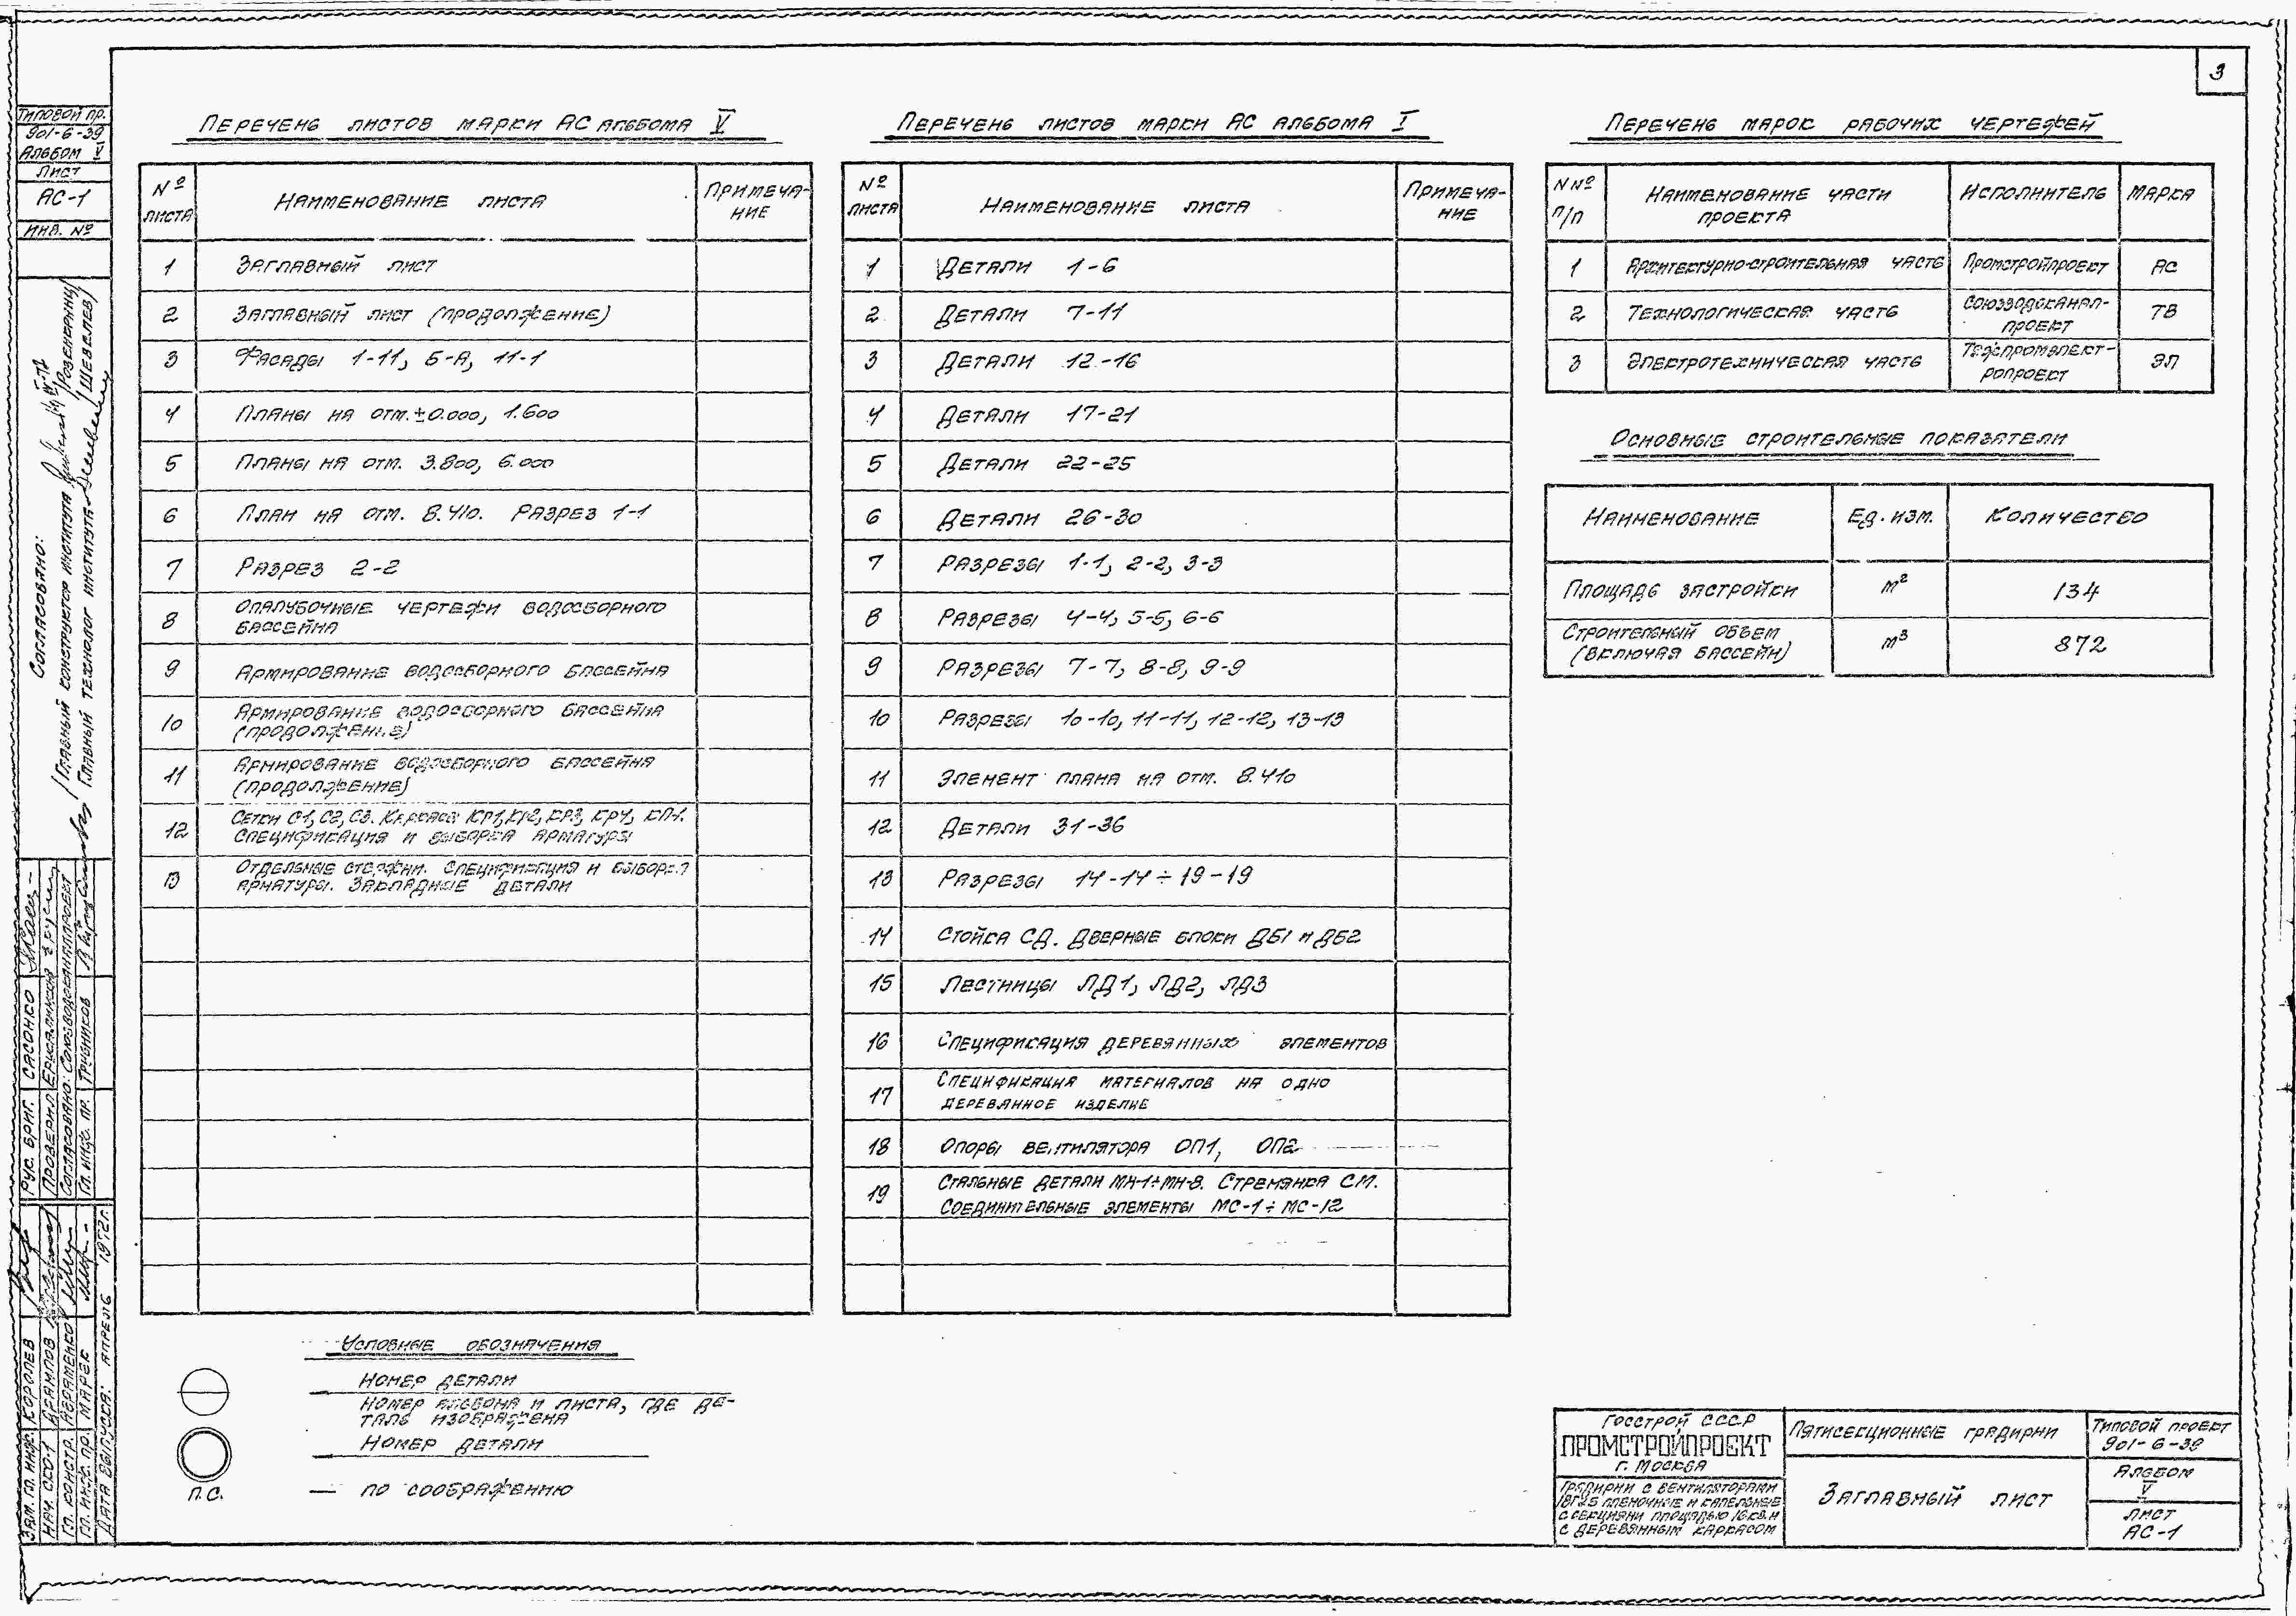 3
Типовой пр.
901-6-39
Альбом V
Лист
АС-1
Инв. №
Перечень листов марки АС альбома V
№ листа
Наименование листа
Примеча-
ние
1 Заглавный лист
2 Заглавный лист (продолжение)
3 Фасады 1-11, Б-А, 11-1
4 Планы на отм. ±0.000, 1.600
5 Планы на отм. 3.800, 6.000
6 План на отм. 8.410. Разрез 1-1
7 Разрез 2-2
8 Опалубочные чертежи водосборного
бассейна
9 Армирование водосборного бассейна
10 Армирование водосборного бассейна
(продолжение)
11 Армирование водосборного бассейна
(продолжение)
12 Сетки С1, С2, С3. Каркасы КР1, КР2, КР3, КР4, КП-1.
Спецификация и выборка арматуры
13 Отдельные стержни. Спецификация и выборка
арматуры. Закладные детали
Перечень листов марки АС альбома I
№ листа
Наименование листа
Примеча-
ние
1 Детали 1-6
2 Детали 7-11
3 Детали 12-16
4 Детали 17-21
5 Детали 22-25
6 Детали 26-30
7 Разрезы 1-1, 2-2, 3-3
8 Разрезы 4-4, 5-5, 6-6
9 Разрезы 7-7, 8-8, 9-9
10 Разрезы 10-10, 11-11, 12-12, 13-13
11 Элемент плана на отм. 8.410
12 Детали 31-36
13 Разрезы 14-14÷19-19
14 Стойка СД. Дверные блоки ДБ1 и ДБ2
15 Лестницы ЛД1, ЛД2, ЛД3
16 Спецификация деревянных элементов
17 Спецификация материалов на одно
деревянное изделие
18 Опоры вентилятора ОП1, ОП2
19 Стальные детали МН-1÷МН-8. Стремянка СМ.
Соединительные элементы МС-1÷МС-12
Перечень марок рабочих чертежей
N№ п/п
Наименование части
проекта
Исполнитель
Марка
1 Архитектурно-строительная часть Промстройпроект АС
2 Технологическая часть Союзводоканал-
проект ТВ
3 Электротехническая часть Тяжпромэлект-
ропроект ЭЛ
Основные строительные показатели
Наименование Ед. изм. Количество
Площадь застройки м² 134
Строительный объем
(включая бассейн) м³ 872
Условные обозначения
Номер детали
Номер альбома и листа, где де-
таль изображена
Номер детали
П.С. — по сообр​ажению
Согласовано:
Главный конструктор института /Розенблюм/
Главный технолог института /Шевелев/
Рук. бриг. Сасонко
Проверил
Согласовано: Союзводоканалпроект
Гл. инж. пр. Трубников
Зам. гл. инж. Королев
Нач. СКО-1
Гл. констр. Авраменко
Гл. инж. пр.
Дата выпуска: апрель 1972г.
Госстрой СССР
ПРОМСТРОЙПРОЕКТ
г. Москва
Градирни с вентиляторами
1ВГ25 пленочные и капельные
с секциями площадью 16 кв.м
с деревянным каркасом
Пятисекционные градирни
Заглавный лист
Типовой проект
901-6-39
Альбом
V
Лист
АС-1